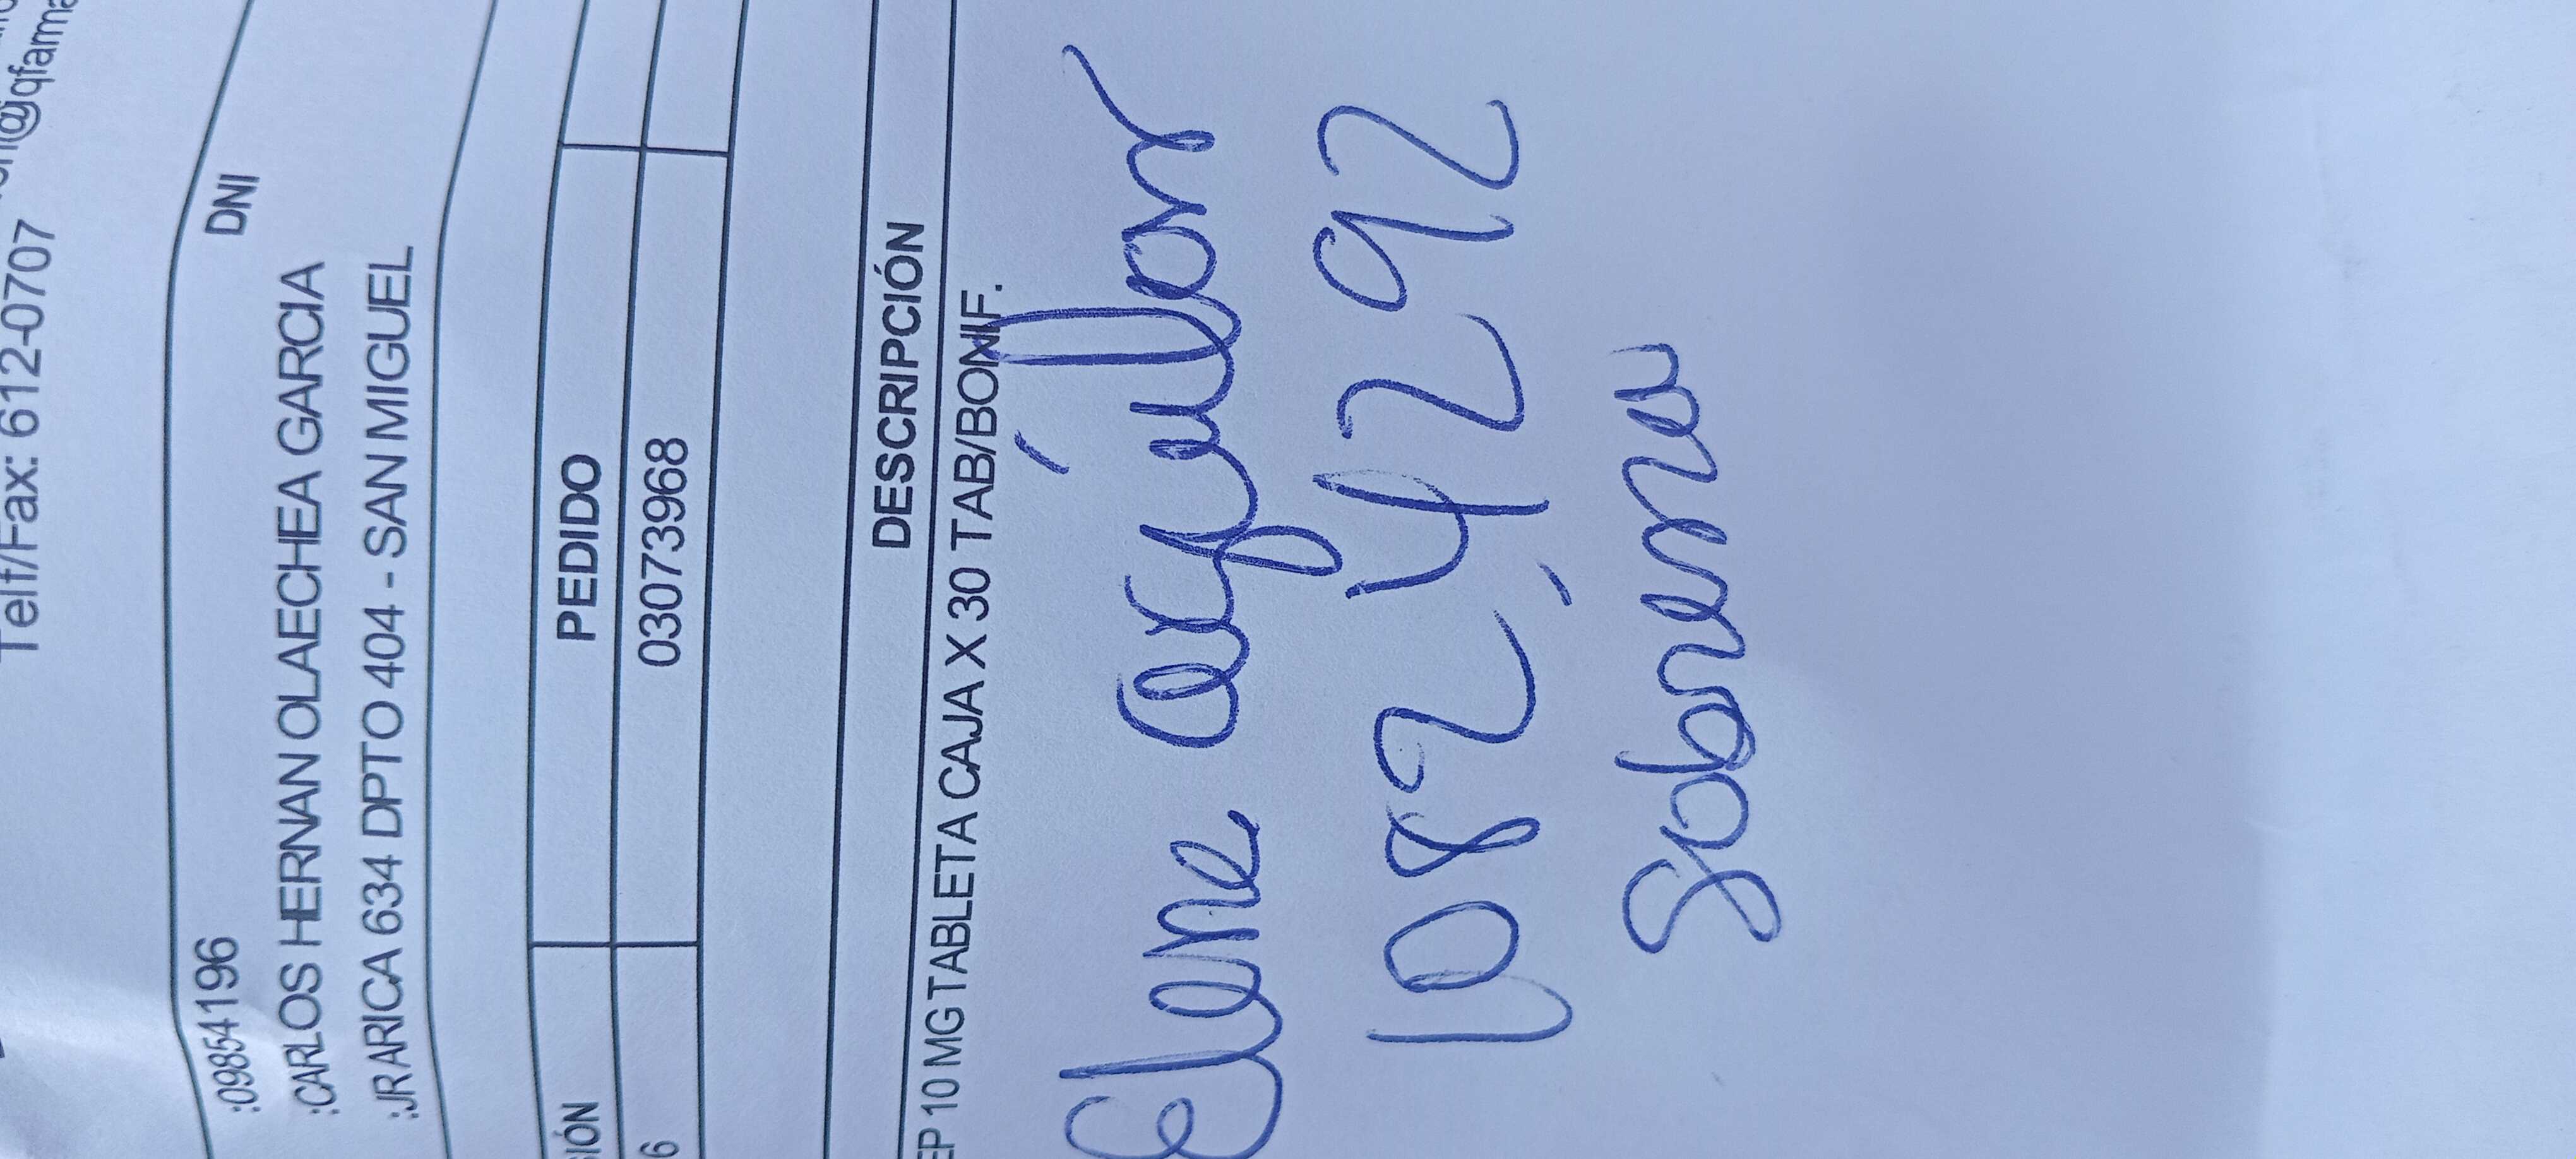 Telf/Fax: 612-0707 @qfarma
:09854196 DNI
:CARLOS HERNAN OLAECHEA GARCIA
:JR ARICA 634 DPTO 404 - SAN MIGUEL
SIÓN PEDIDO
6 03073968
DESCRIPCIÓN
EP 10 MG TABLETA CAJA X 30 TAB/BONIF.
Elena
10824292
Sobrina